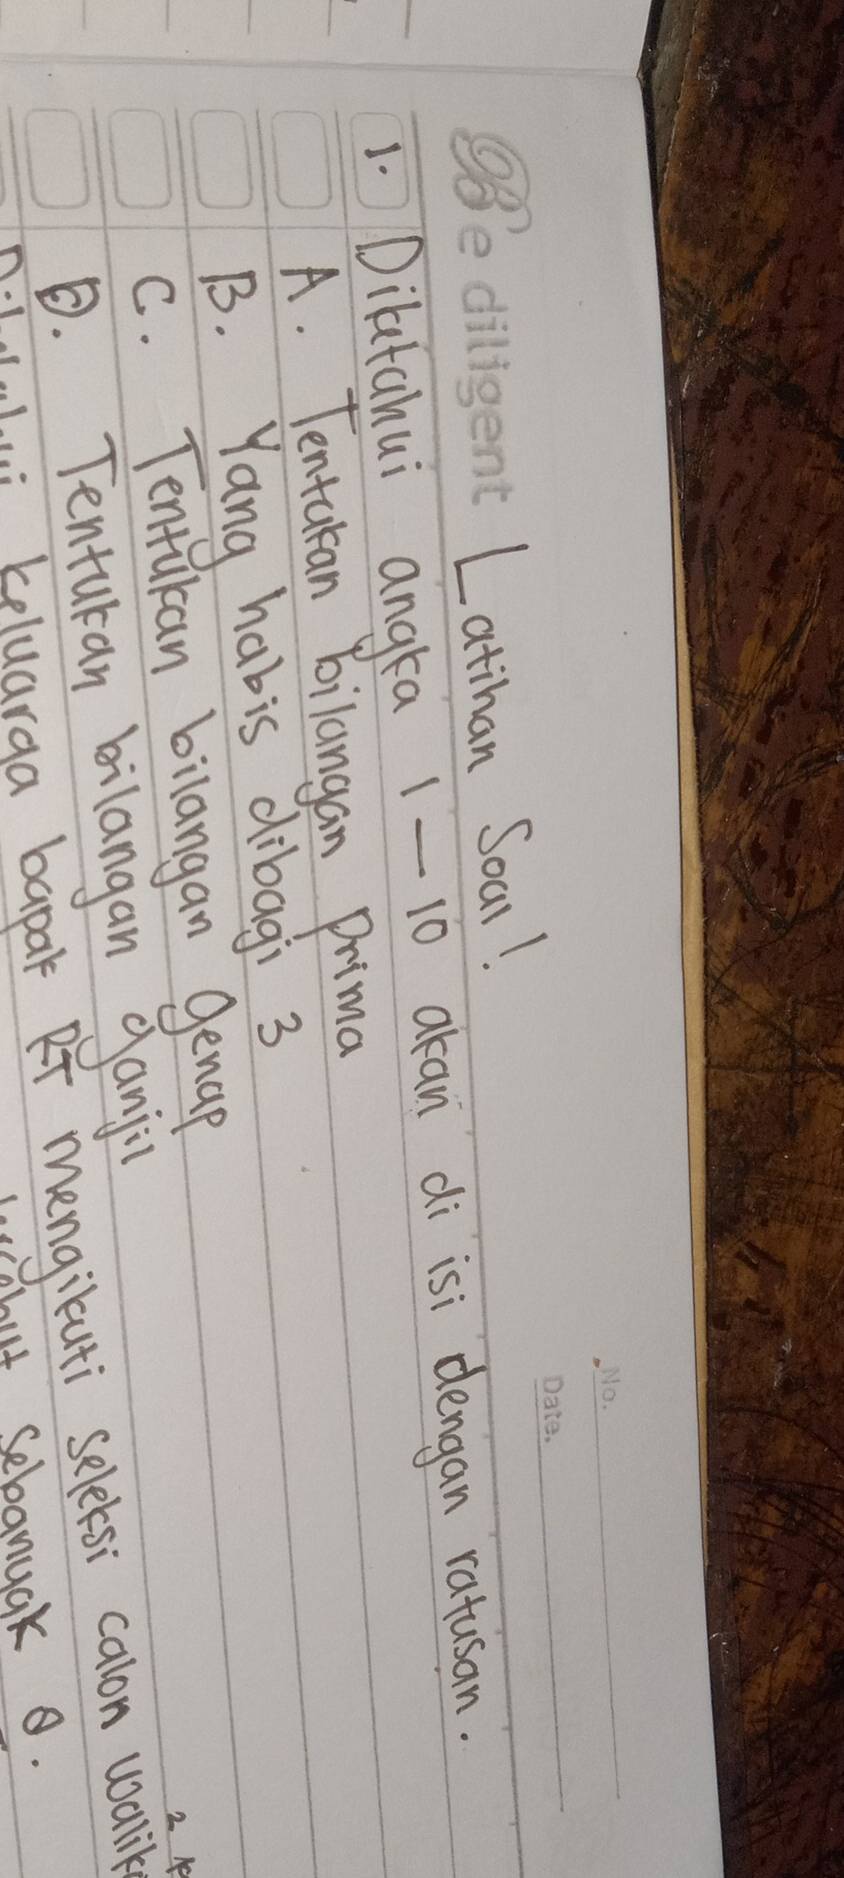 No.
Date.
Be diligent Latihan Soal!
1. Diketahui angka 1 – 10 akan di isi dengan ratusan.
A. Tentukan bilangan prima
B. Yang habis dibagi 3
C. Tentukan bilangan genap
D. Tentukan bilangan ganjil
keluarga bapak RT mengikuti seleksi calon
sebanyak